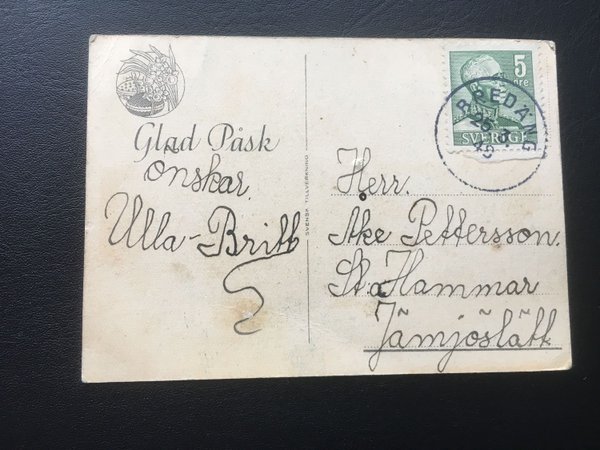 Glad Påsk
önskar.
Ulla-Britt
SVENSK TILLVERKNING
5
öre
SVERIGE
BREDÅNG
Herr.
Åke Pettersson.
St. Hammar
Jämjöslätt